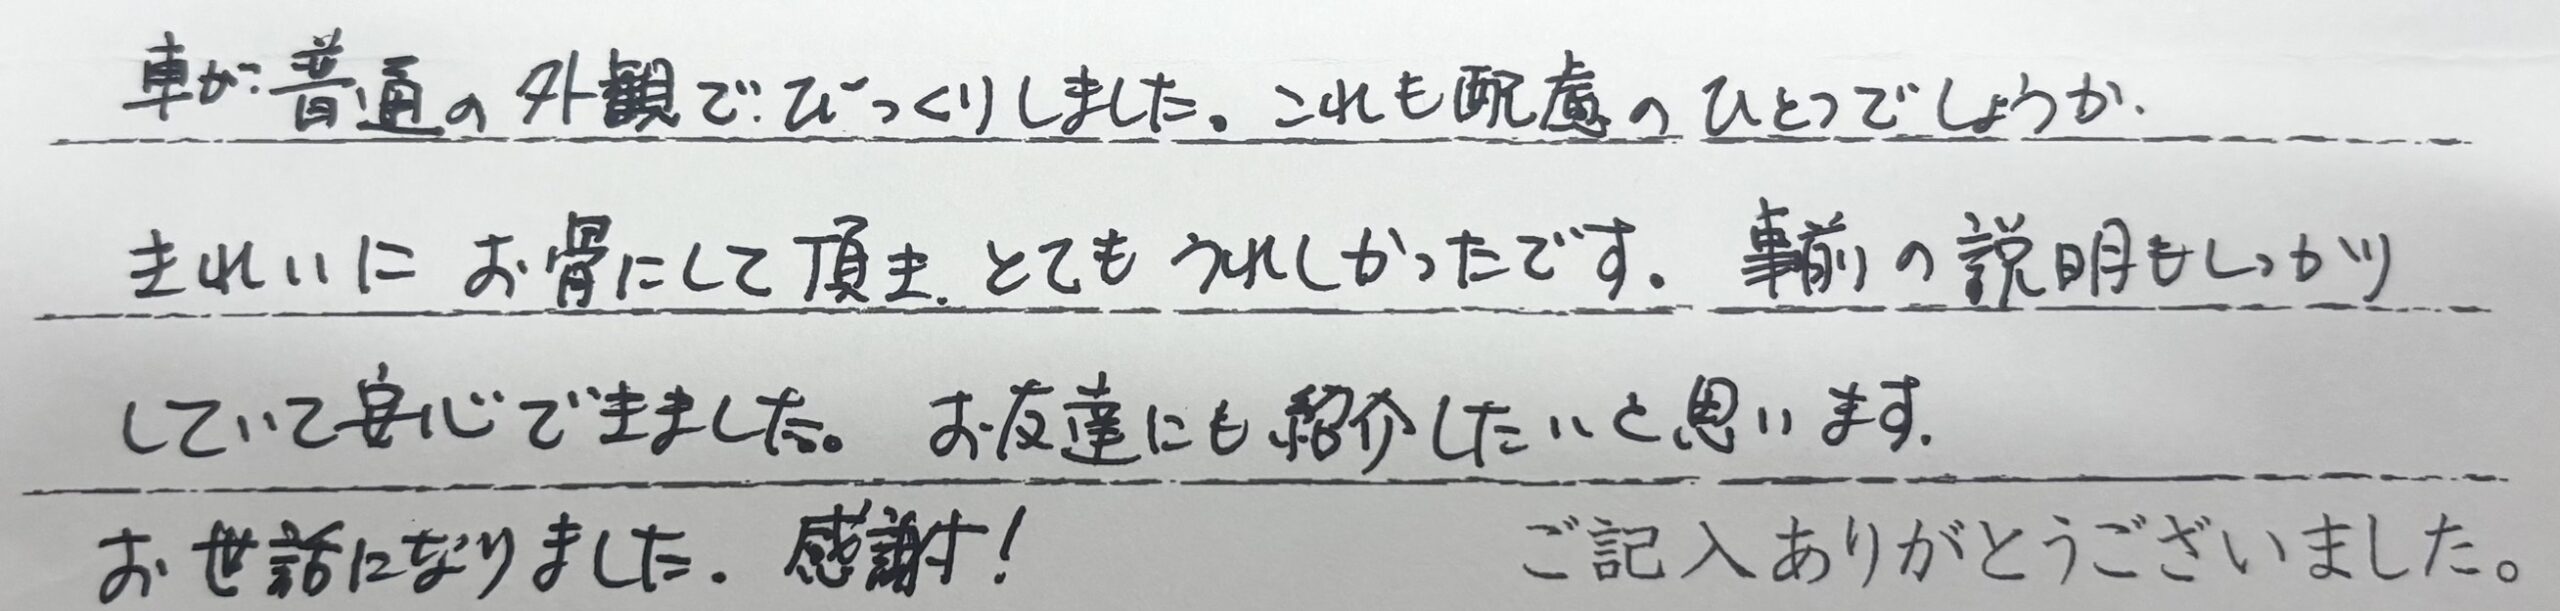 車が普通の外観でびっくりしました。これも配慮のひとつでしょうか、
きれいにお骨にして頂き、とてもうれしかったです。事前の説明もしっかり
していて安心できました。お友達にも紹介したいと思います。
お世話になりました。感謝！ ご記入ありがとうございました。